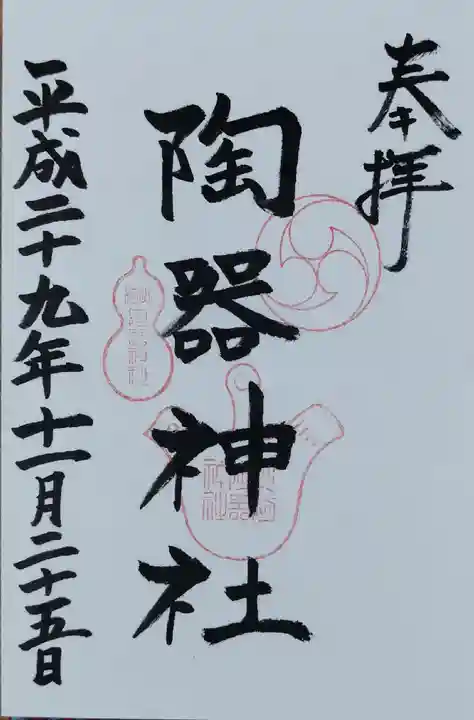 奉拝
陶器神社
平成二十九年十一月二十五日